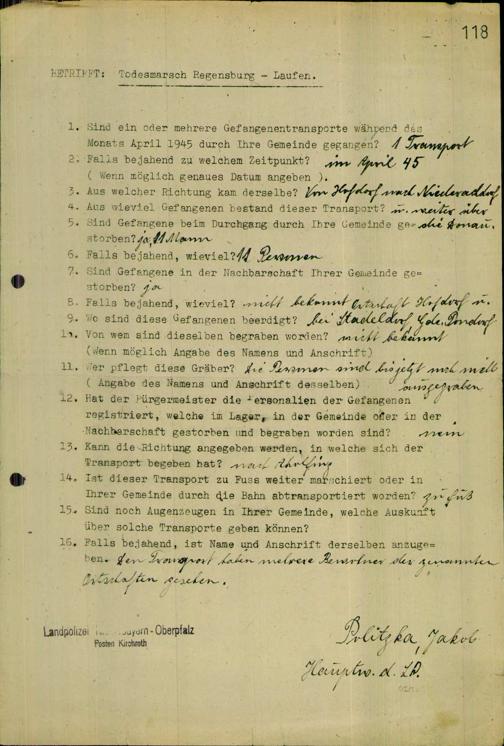 118
BETRIFFT: Todesmarsch Regensburg - Laufen.
1. Sind ein oder mehrere Gefangenentransporte während des
Monats April 1945 durch Ihre Gemeinde gegangen? 1 Transport
2. Falls bejahend zu welchem Zeitpunkt? im April 45
( Wenn möglich genaues Datum angeben ).
3. Aus welcher Richtung kam derselbe? Von Hofdorf nach Niederachdorf
4. Aus wieviel Gefangenen bestand dieser Transport? u. weiter über
5. Sind Gefangene beim Durchgang durch Ihre Gemeinde ge= die Donau.
storben? ja, 11 Mann
6. Falls bejahend, wieviel? 11 Personen
7. Sind Gefangene in der Nachbarschaft Ihrer Gemeinde ge=
storben? ja
8. Falls bejahend, wieviel? nicht bekannt Ortschaft Hofdorf u.
9. Wo sind diese Gefangenen beerdigt? bei Stadeldorf Gde. Pondorf
10. Von wem sind dieselben begraben worden? nicht bekannt
(Wenn möglich Angabe des Namens und Anschrift)
11. Wer pflegt diese Gräber? die Personen sind bis jetzt noch nicht
( Angabe des Namens und Anschrift desselben) ausgegraben
12. Hat der Bürgermeister die Personalien der Gefangenen
registriert, welche im Lager, in der Gemeinde oder in der
Nachbarschaft gestorben und begraben worden sind? nein
13. Kann die Richtung angegeben werden, in welche sich der
Transport begeben hat? nach
14. Ist dieser Transport zu Fuss weiter marschiert oder in
Ihrer Gemeinde durch die Bahn abtransportiert worden? zu Fuß
15. Sind noch Augenzeugen in Ihrer Gemeinde, welche Auskunft
über solche Transporte geben können?
16. Falls bejahend, ist Name und Anschrift derselben anzuge=
ben. Den Transport haben mehrere Bewohner der genannten
Ortschaften gesehen.
Landpolizei Niederbayern - Oberpfalz
Posten Kirchroth
Politzka, Jakob
Hauptw. d. LP.